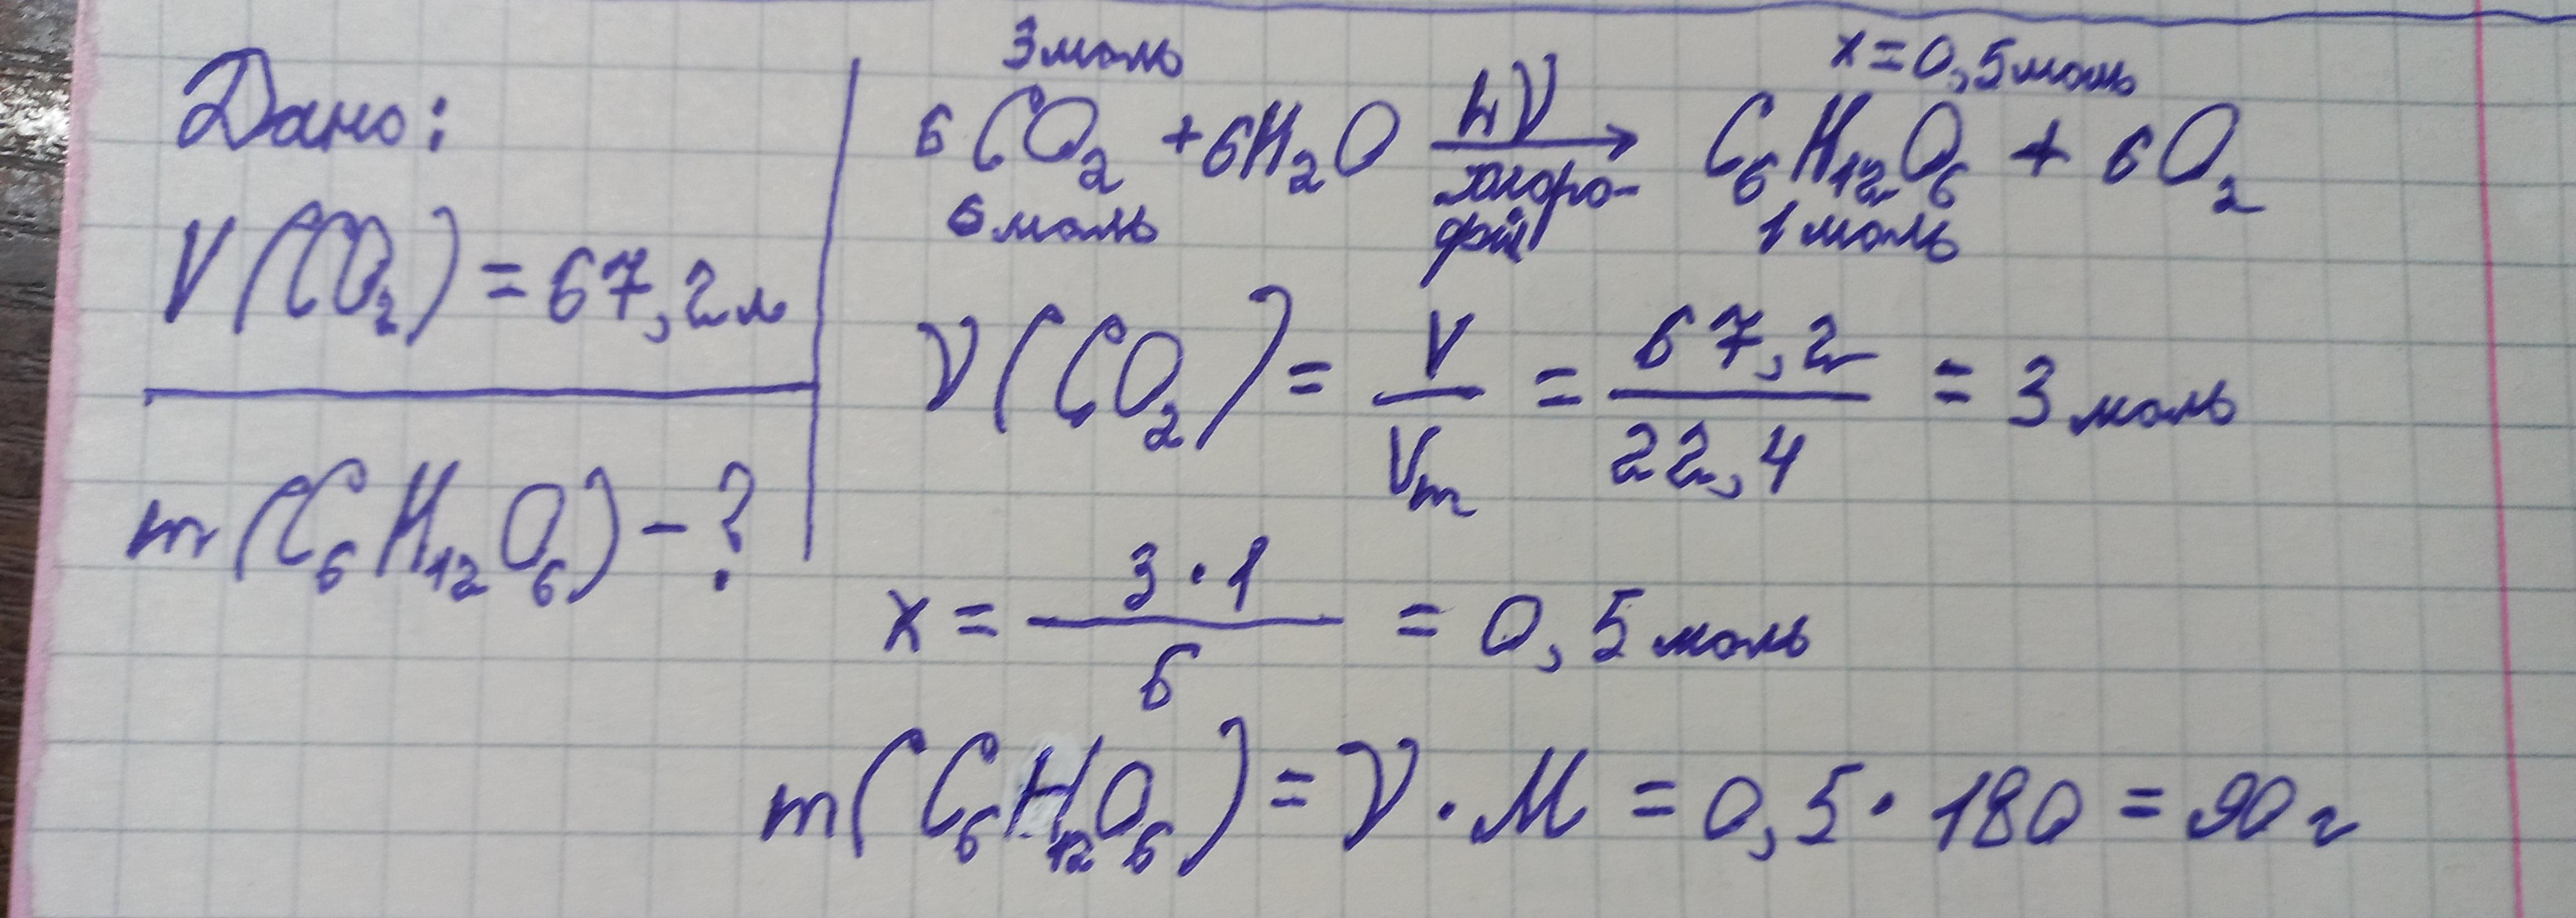 Дано:
V(CO₂) = 67,2 л
m(C₆H₁₂O₆) - ?
3 моль x = 0,5 моль
6CO₂ + 6H₂O hν → C₆H₁₂O₆ + 6O₂
хлоро-
фил
6 моль 1 моль
ν(CO₂) = V/Vm = 67,2/22,4 = 3 моль
x = 3·1/6 = 0,5 моль
m(C₆H₁₂O₆) = ν · M = 0,5 · 180 = 90 г